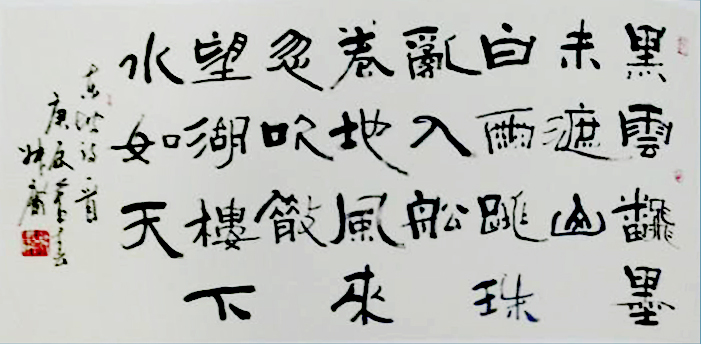 黑雲飜墨
未遮山
白雨跳珠
亂入舩
卷地風來
忽吹散
望湖樓下
水如天
东坡诗一首
庚辰